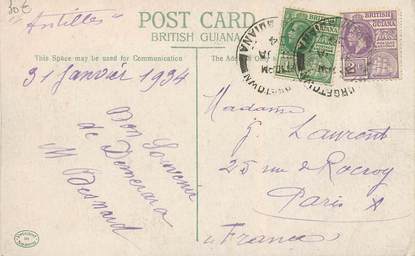 30€
Antilles
POST CARD
BRITISH GUIANA
This Space may be used for Communication
The Address
31 Janvier 1934
Bon Souvenir
de Démérara
M Besnard
Madame
G. Laurent
25 rue de Rocroy
Paris X
France
BRITISH
GUIANA